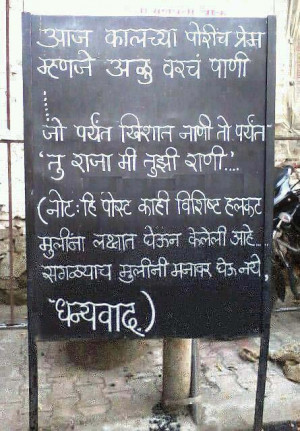 आज कालच्या पोरीच प्रेम
म्हणजे अळु वरचं पाणी
......
जो पर्यंत खिशात नाणी तो पर्यंत
'तु राजा मी तुझी राणी....'
(नोट: हि पोस्ट काही विशिष्ट हलकट
मुलींना लक्षात घेऊन केलेली आहे....
सगळ्याच मुलींनी मनावर घेऊ नये,
धन्यवाद)